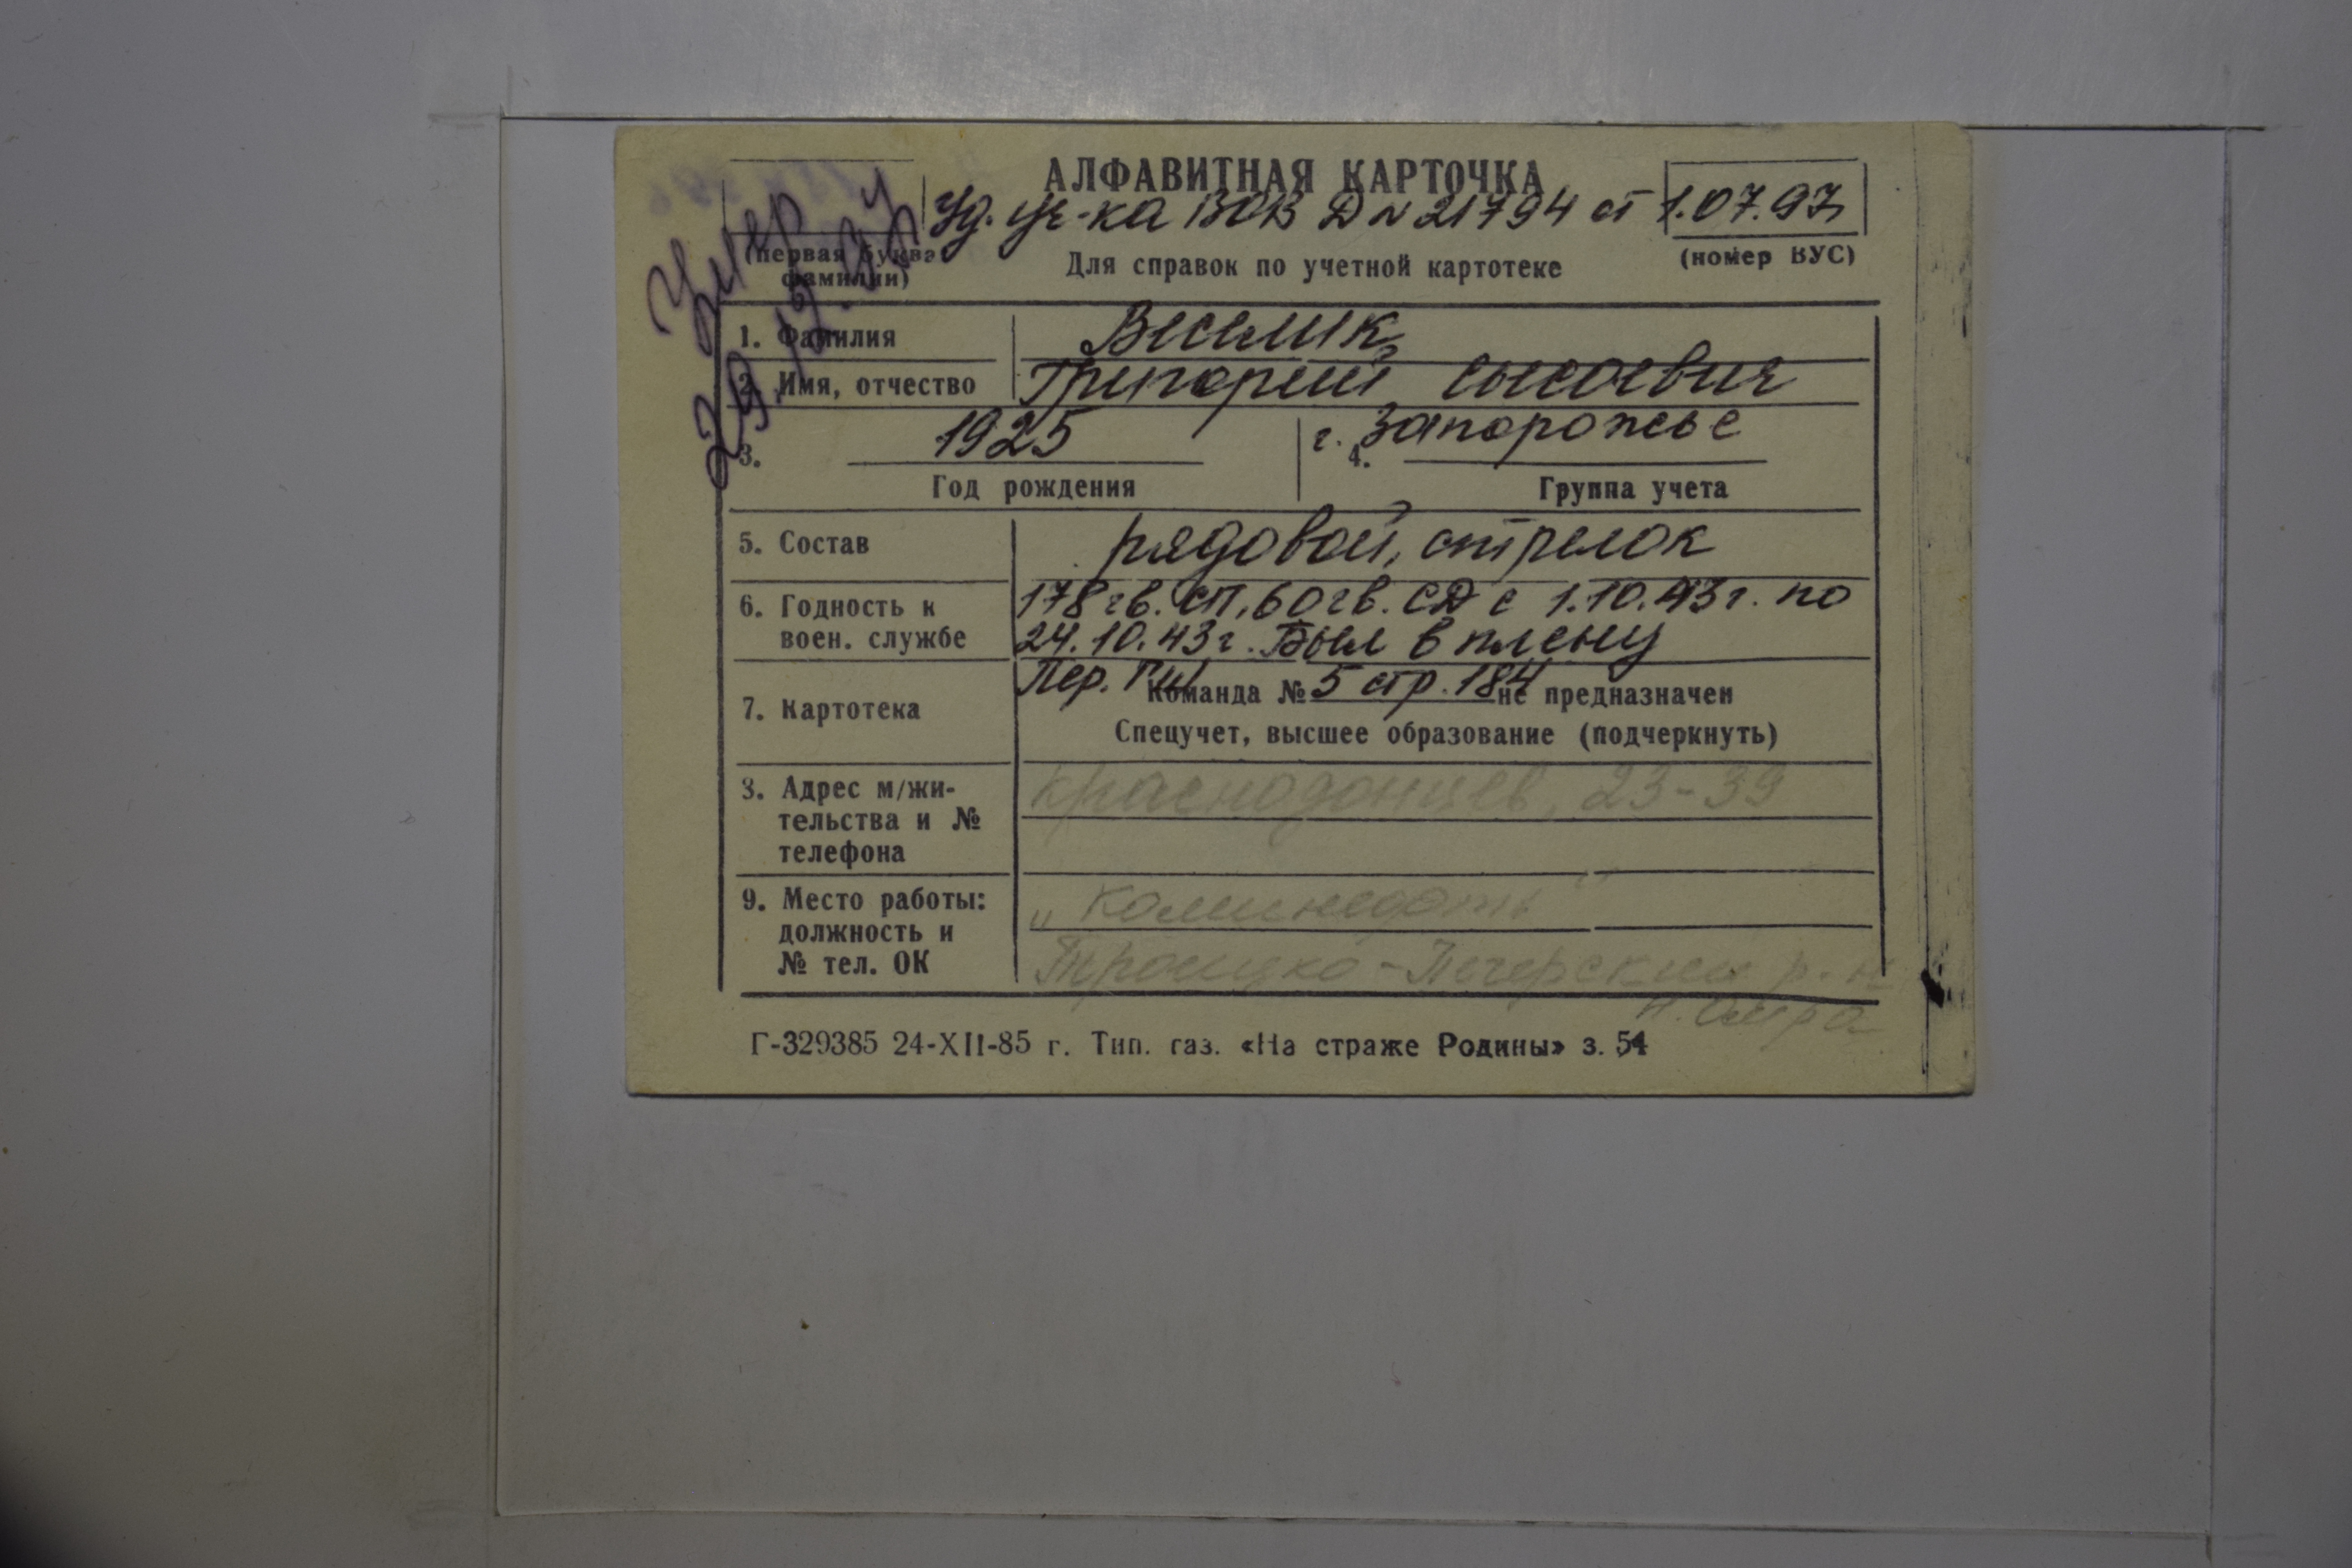 АЛФАВИТНАЯ КАРТОЧКА
Уд. уч-ка ВОВ Д № 21794 от 1.07.97
(первая буква фамилии)
Для справок по учетной картотеке
(номер ВУС)
Умер
29.12.
1. Фамилия Веселик
2. Имя, отчество Григорий Сысоевич
3. 1925
г. Запорожье
4.
Год рождения Группа учета
5. Состав рядовой, стрелок
6. Годность к воен. службе 178 гв. СП, 60 гв. СД с 1.10.43г. по
24.10.43г. Был в плену
7. Картотека Пер. ГШ 5 стр. 184
Команда № не предназначен
Спецучет, высшее образование (подчеркнуть)
8. Адрес м/жи-
тельства и №
телефона
Краснодонцев, 23-39
9. Место работы:
должность и
№ тел. ОК
"Коминефть"
Троицко-Печерский р-н
п. Омра
Г-329385 24-XII-85 г. Тип. газ. «На страже Родины» з. 54